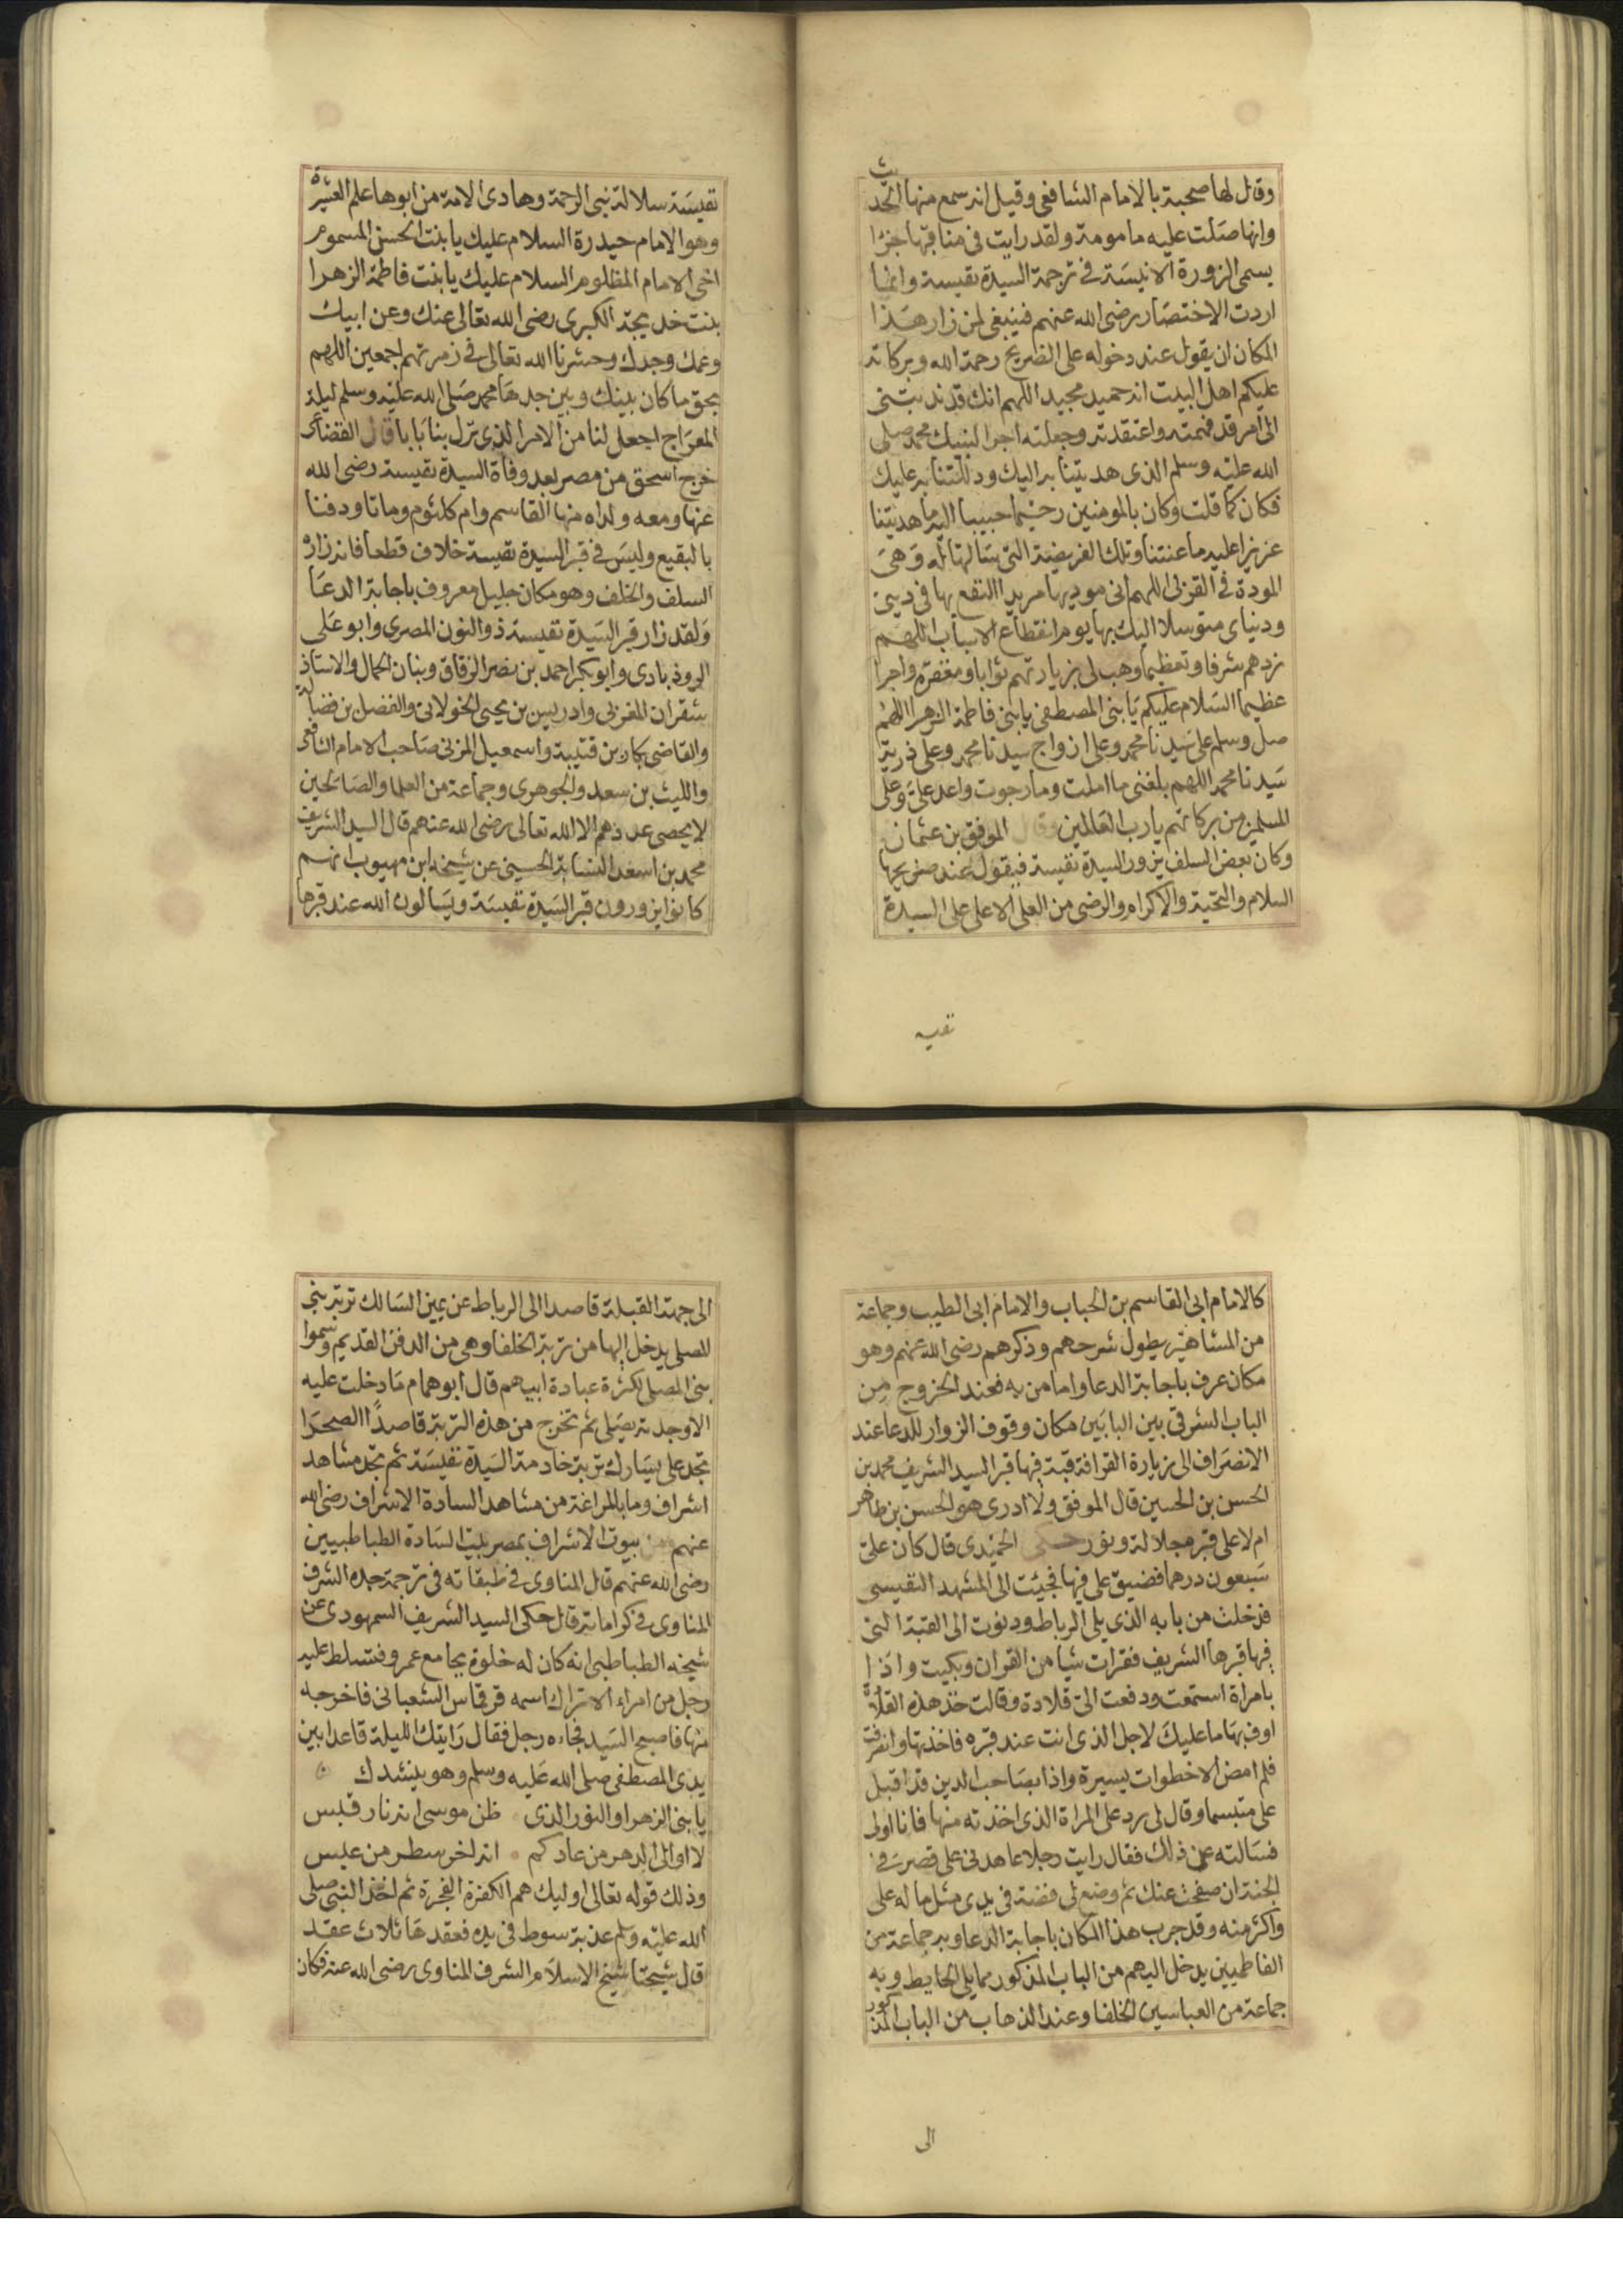 وقال لها صحبة بالامام الشافعى وقيل انه سمع منها الحديث
وانها صلت عليه مامومة ولقد رايت فى مناقبها جزا
يسمى الزورة الانيسة فى ترجمة السيدة نفيسة وانما
اردت الاختصار رضى الله عنهم فينبغى لمن زار هذا
المكان ان يقول عند دخوله على الضريح رحمة الله وبركاته
عليكم اهل البيت انه حميد مجيد اللهم انك قد ندبتنى
الى امر قد فهمته واعتقدته وجعلته اجرا لنبيك محمد صلى
الله عليه وسلم الذى هديتنا به اليك ودللتنا به عليك
فكان كما قلت وكان بالمومنين رحيما حبيبا اليه ما هديتنا
عزيزا عليه ما عنتنا وتلك الفريضة التى سالتها له وهى
المودة فى القربى اللهم انى موديها مريدا النفع بها فى دينى
ودنياى متوسلا اليك بها يوم انقطاع الاسباب اللهم
زدهم شرفا وتعظيما وهب لى بزيارتهم ثوابا ومغفرة واجرا
عظيما السلام عليكم يا بنى المصطفى يا بنى فاطمة الزهرا اللهم
صل وسلم على سيدنا محمد وعلى ازواج سيدنا محمد وعلى ذرية
سيدنا محمد اللهم بلغنى ما املت وما رجوت واعد على وعلى
المسلمين من بركاتهم يا رب العالمين وقال الموفق بن عثمان
وكان بعض السلف يزور السيدة نفيسة فيقول عند ضريحها
السلام والتحية والاكرام والرضى من العلى الاعلى على السيدة
نفيسه
نفيسة سلالة نبى الرحمة وهادى الامة من ابوها علم العشيرة
وهو الامام حيدرة السلام عليك يا بنت الحسن المسموم
اخى الامام المظلوم السلام عليك يا بنت فاطمة الزهرا
بنت خديجة الكبرى رضى الله تعالى عنك وعن ابيك
وعمك وجدك وحشرنا الله تعالى فى زمرتهم اجمعين اللهم
بحق ما كان بينك وبين جدها محمد صلى الله عليه وسلم ليلة
المعراج اجعل لنا من الامر الذى نزل بنا بابا قال القضاعى
خرج اسحق من مصر بعد وفاة السيدة نفيسة رضى الله
عنها ومعه ولداه منها القاسم وام كلثوم وماتا ودفنا
بالبقيع وليس فى قبر السيدة نفيسة خلاف قطعا فانه زاره
السلف والخلف وهو مكان جليل معروف باجابة الدعا
ولقد زار قبر السيدة نفيسة ذو النون المصرى وابو على
الروذبادى وابو بكر احمد بن نصر الزقاق وبنان الحمال والاستاذ
شقران المغربى وادريس بن يحيى الخولانى والفضل بن فضالة
والقاضى بكار بن قتيبة واسمعيل المزنى صاحب الامام الشافعى
والليث بن سعد والجوهرى وجماعة من العلما والصالحين
لا يحصى عددهم الا الله تعالى رضى الله عنهم قال السيد الشريف
محمد بن اسعد النسابة الحسينى عن شيخه ابن مهيوب انهم
كانوا يزورون قبر السيدة نفيسة ويسالون الله عند قبرها
كالامام ابى القاسم بن الحباب والامام ابى الطيب وجماعة
من المشاهير يطول شرحهم وذكرهم رضى الله عنهم وهو
مكان عرف باجابة الدعا واما من به فعند الخروج من
الباب الشرقى بين البابين مكان وقوف الزوار للدعا عند
الانصراف الى زيارة القرافة قبة فيها قبر السيد الشريف محمد بن
الحسن بن الحسين قال الموفق ولا ادرى هو الحسن بن طاهر
ام لا على قبره جلالة ونور حكى الحميدى قال كان على
سبعون درهما فضيق على فيها فجئت الى المشهد النفيسى
فدخلت من بابه الذى يلى الرباط ودنوت الى القبة التى
فيها قبرها الشريف فقرات شيا من القران وبكيت واذا
بامراة استمعت ودفعت الى قلادة وقالت خذ هذه القلادة
اوف بها ما عليك لاجل الذى انت عند قبره فاخذتها وانصرفت
فلم امض الا خطوات يسيرة واذا بصاحب الدين قد اقبل
على متبسما وقال لى رد على المراة الذى اخذته منها فانا اولى
فسالته عن ذلك فقال رايت رجلا عاهدنى على قصر فى
الجنة ان صفحت عنك ثم وضع لى فضة فى يدى مثل ما له على
واكثر منه وقد جرب هذا المكان باجابة الدعا وبه جماعة من
الفاطميين يدخل اليهم من الباب المذكور مما يلى الحايط وبه
جماعة من العباسيين الخلفا وعند الذهاب من الباب المذكور
الى
الى جهة القبلة قاصدا الى الرباط عن يمين السالك تربة بنى
المصلى يدخل اليها من تربة الخلفا وهى من الدفن القديم وسموا
بنى المصلى لكثرة عبادة ابيهم قال ابو همام ما دخلت عليه
الا وجدته يصلى ثم تخرج من هذه التربة قاصدا الصحرا
تجد على يسارك تربة خادمة السيدة نفيسة ثم تجد مشاهد
اشراف وما بالمراغة من مشاهد السادة الاشراف رضى الله
عنهم من بيوت الاشراف بمصر بيت السادة الطباطبيين
رضى الله عنهم قال المناوى فى طبقاته فى ترجمة جده الشرف
المناوى فى كراماته قال حكى السيد الشريف السمهودى عن
شيخه الطباطبى انه كان له خلوة بجامع عمرو فتسلط عليه
رجل من امراء الاتراك اسمه قرقاس الشعبانى فاخرجه
منها فاصبح السيد فجاءه رجل فقال رايتك الليلة قاعدا بين
يدى المصطفى صلى الله عليه وسلم وهو ينشدك
يا بنى الزهرا والنور الذى ظن موسى انه نار قبس
لا اوالى الدهر من عادكم انه اخر سطر من عبس
وذلك قوله تعالى اوليك هم الكفرة الفجرة ثم اخذ النبى صلى
الله عليه وسلم عذبة سوط فى يده فعقدها ثلاث عقد
قال شيخنا شيخ الاسلام الشرف المناوى رضى الله عنه فكان